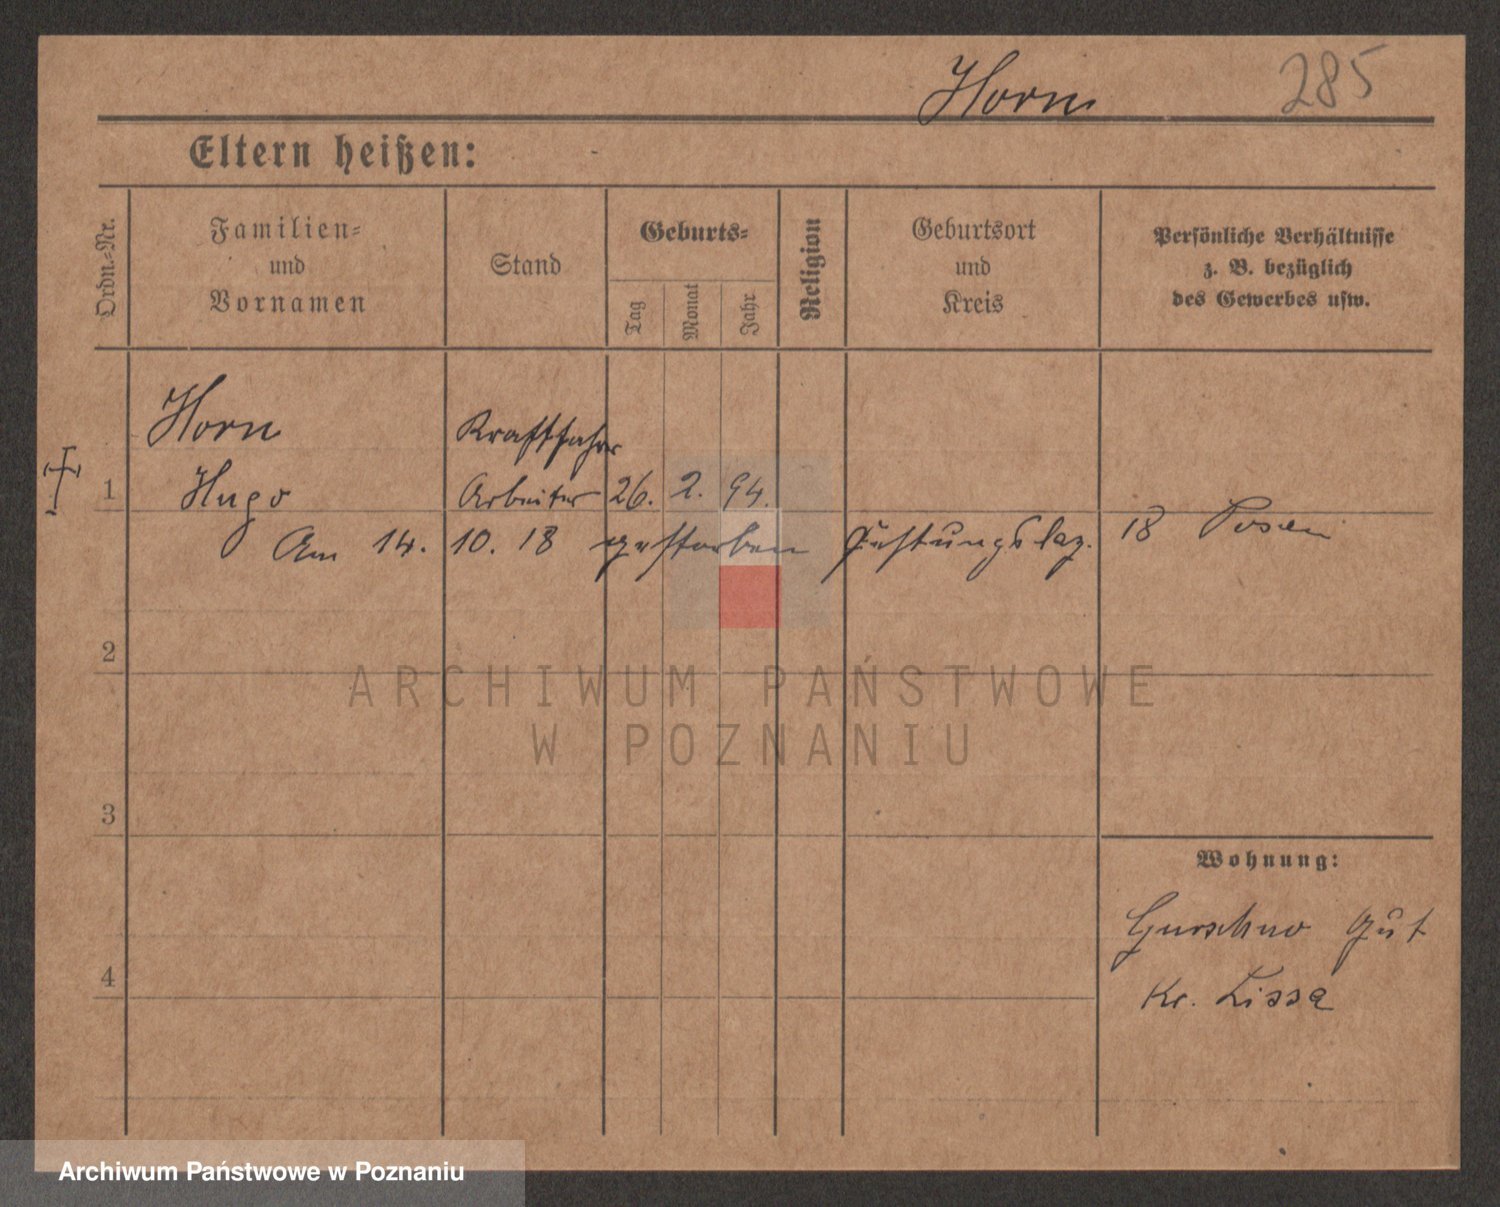 Horn 285
Eltern heißen:
Ordn.-Nr.
Familien-
und
Vornamen
Stand
Geburts-
Tag
Monat
Jahr
Religion
Geburtsort
und
Kreis
Persönliche Verhältnisse
z. B. bezüglich
des Gewerbes usw.
Horn Kraftfahrer
1 Hugo Arbeiter 26. 2. 94.
Am 14. 10. 18 gestorben Festungslaz. 18 Posen
2
ARCHIWUM PAŃSTWOWE
W POZNANIU
3
Wohnung:
Gurschno Gut
4
Kr. Lissa
Archiwum Państwowe w Poznaniu